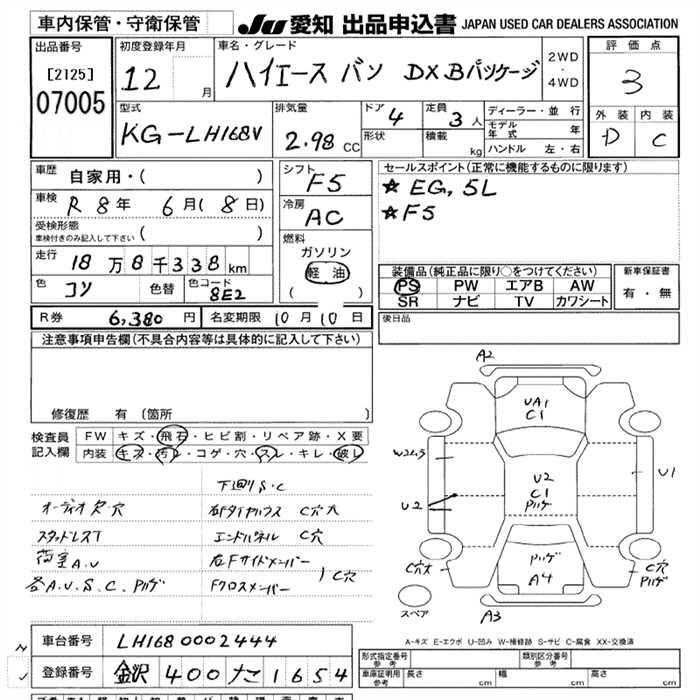 車内保管・守衛保管
JU 愛知 出品申込書 JAPAN USED CAR DEALERS ASSOCIATION
出品番号
[2125]
07005
初度登録年月
12 月
車名・グレード
ハイエース バン DX Bパッケージ
2WD
・
4WD
評価点
3
外装 内装
D C
型式
KG-LH168V
排気量
2.98 CC
ドア 4
形状
定員 3 人
積載 kg
ディーラー・並行
モデル年式 年
ハンドル 左・右
車歴 自家用・( )
車検 R 8年 6月(8日)
受検形態
車検付きのみ記入して下さい ( )
走行 18万8千338km
色 コン 色替 色コード 8E2
シフト
F5
冷房
AC
燃料
ガソリン
軽油
( )
セールスポイント(正常に機能するものに限ります)
☆ EG, 5L
☆ F5
装備品(純正品に限り○をつけてください)
PS PW エアB AW
SR ナビ TV カワシート
新車保証書
有・無
R券 6,380円 名変期限 10月10日
後日品
注意事項申告欄(不具合内容等は具体的に記入して下さい)
修復歴 有 〔箇所 〕
検査員
記入欄
FW キズ・飛石・ヒビ割・リペア跡・X要
内装 キズ・汚レ・コゲ・穴・スレ・キレ・破レ
下回りS・C
オーディオ欠・穴 右Fタイヤハウス C穴大
スタッドレスT エンドパネル C穴
荷室A.U 右Fサイドメンバー
各A.U.S.C.ハゲ Fクロスメンバー C穴
A2
UA1
C1
U2
C1
ハゲ
U1
U2
C穴大
ハゲ
A4
C穴
ハゲ
スペア
A3
A-キズ E-エクボ U-凹み W-補修跡 S-サビ C-腐食 XX-交換済
車台番号 LH168 0002444
登録番号 金沢 400 ナこ 1654
形式指定番号
参考
類別区分番号
参考
車庫証明用
参考
長さ cm 幅 cm 高さ cm